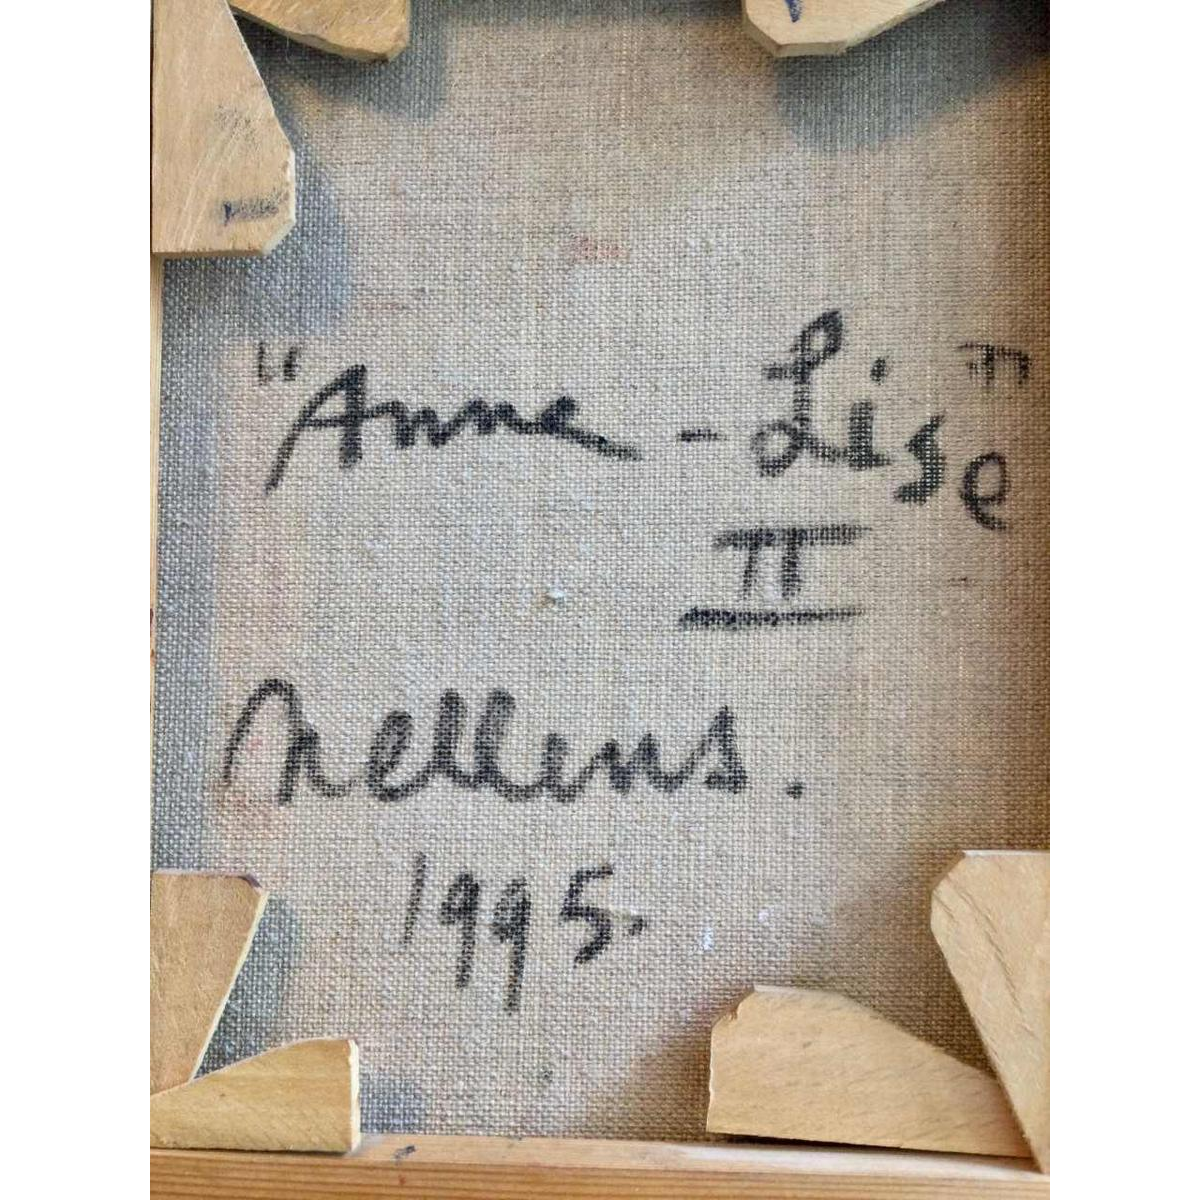 "Anne-Lise"
II
Nellens.
1995.